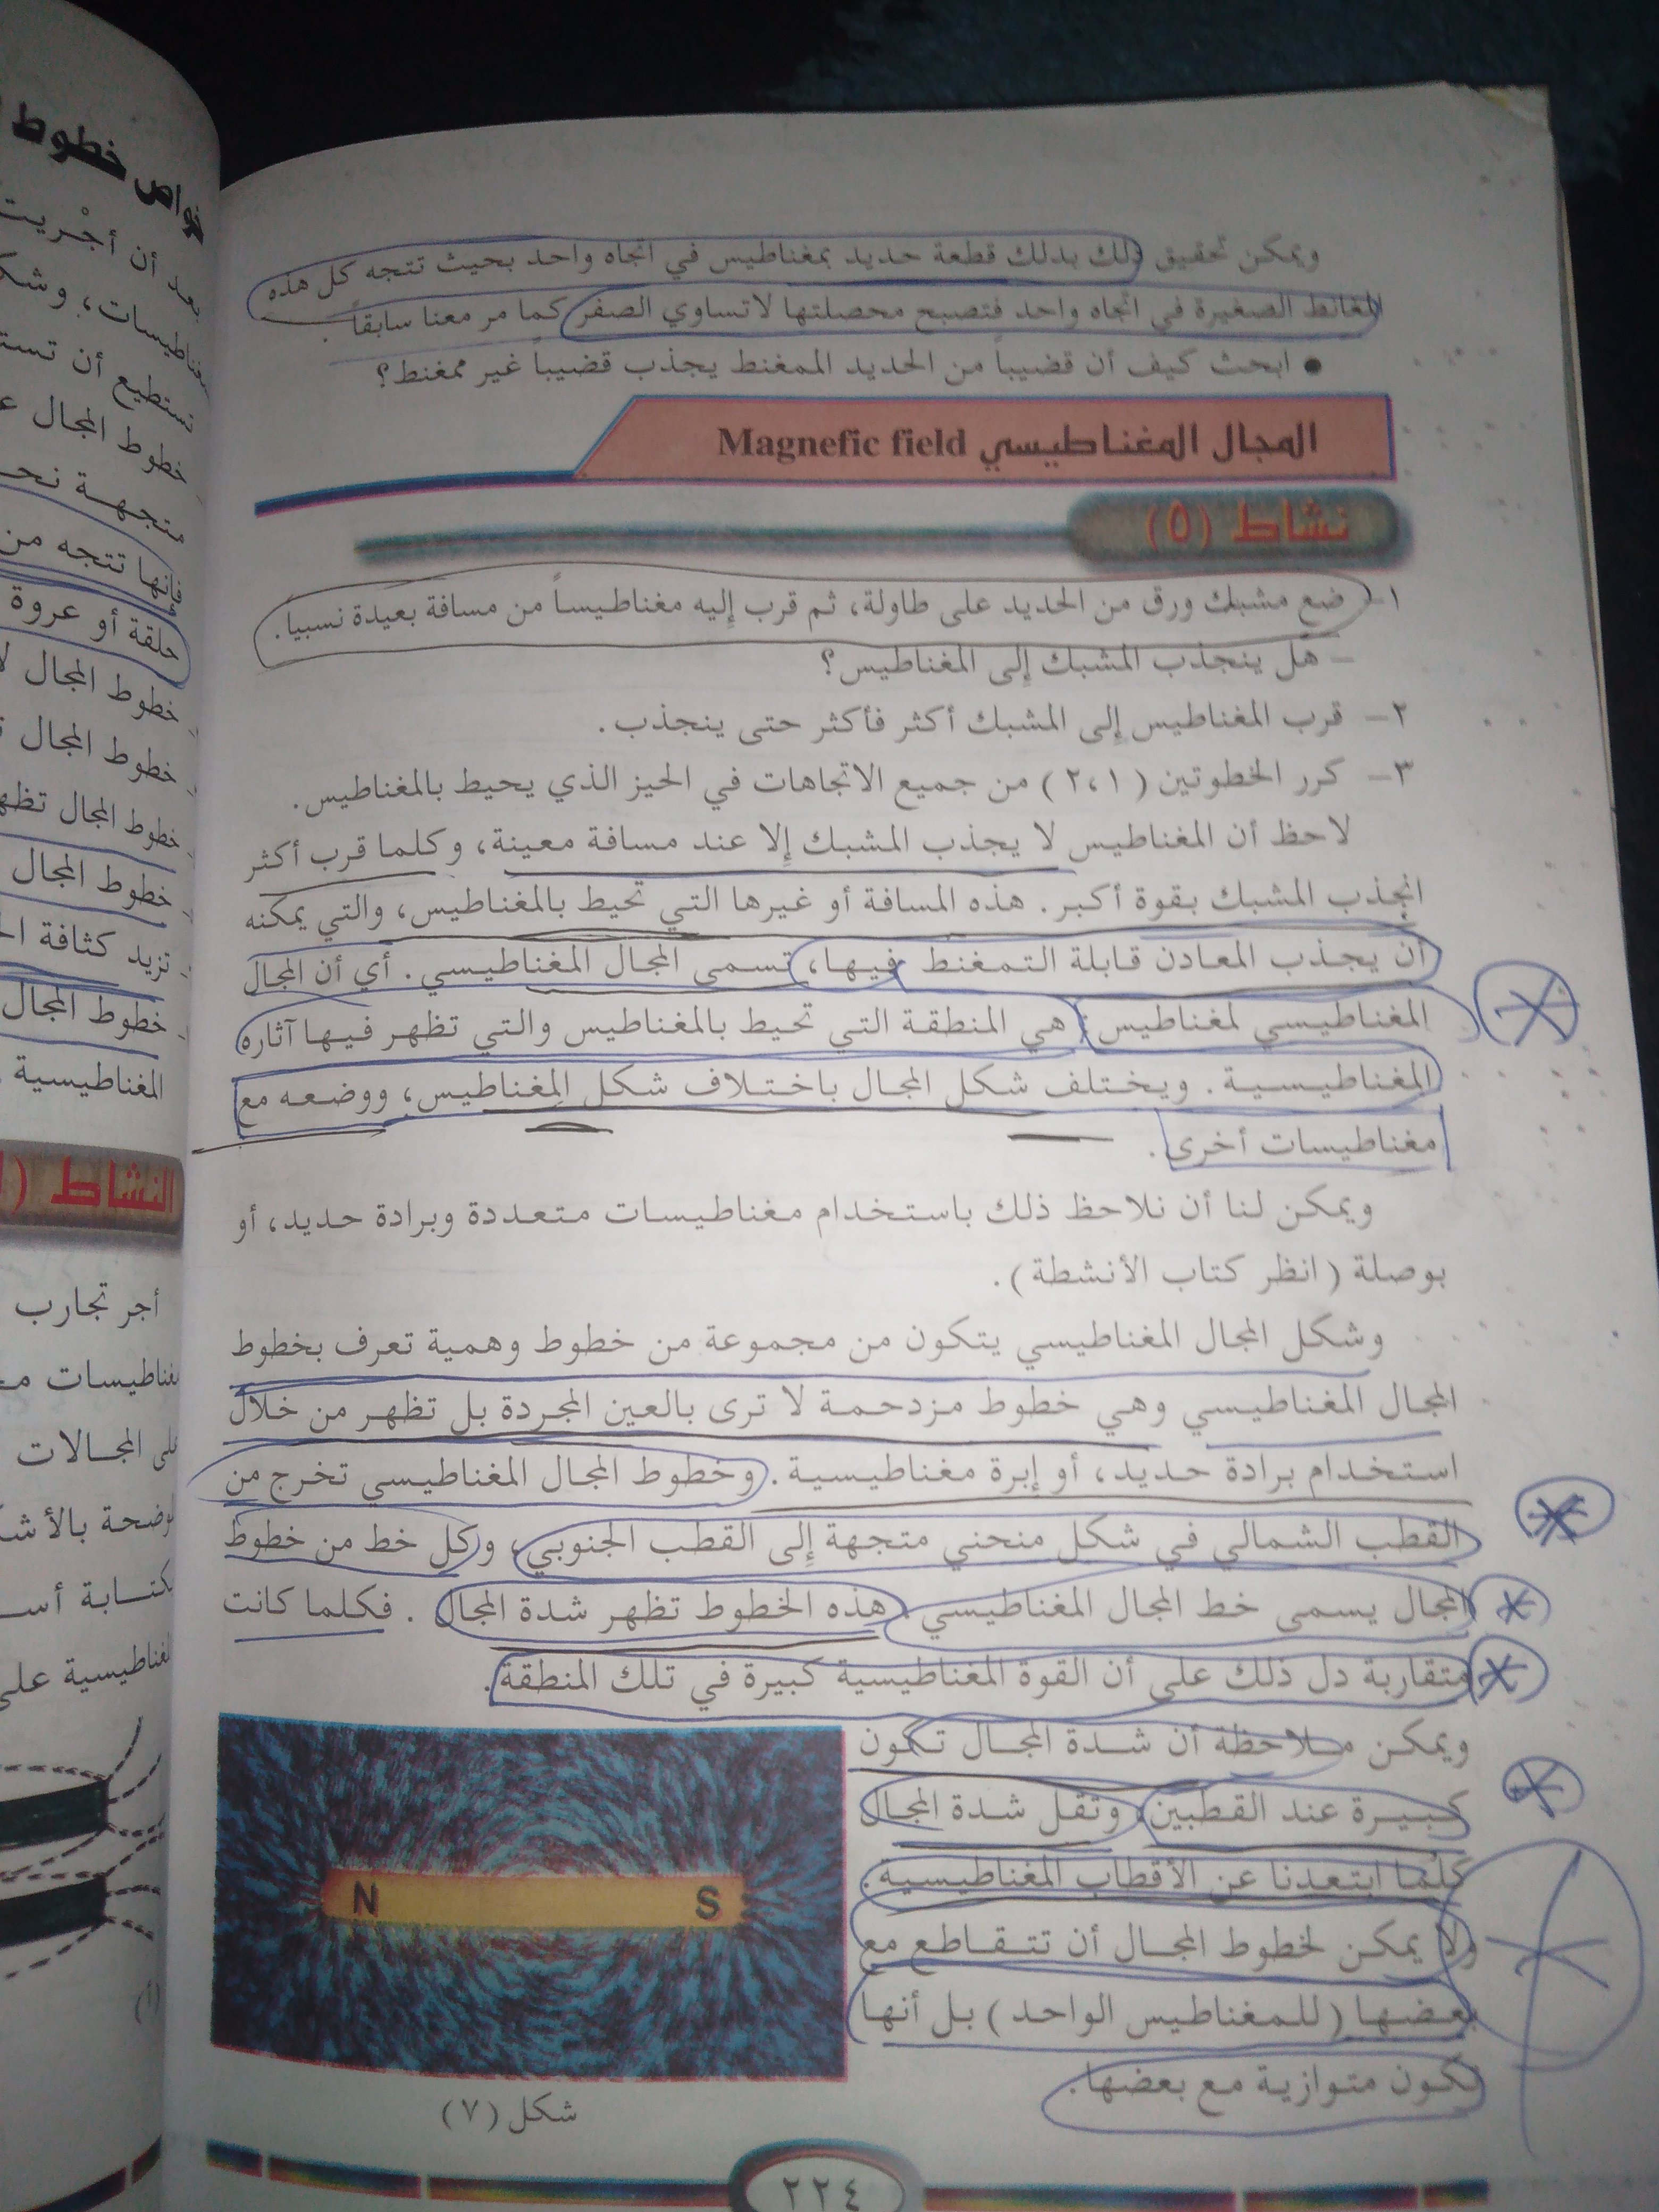 ويمكن تحقيق ذلك بدلك قطعة حديد بمغناطيس في اتجاه واحد بحيث تتجه كل هذه
المغانط الصغيرة في اتجاه واحد فتصبح محصلتها لاتساوي الصفر كما مر معنا سابقاً.
● ابحث كيف أن قضيباً من الحديد الممغنط يجذب قضيباً غير ممغنط؟
المجال المغناطيسي Magnefic field
نشاط (٥)
١- ضع مشبك ورق من الحديد على طاولة، ثم قرب إليه مغناطيساً من مسافة بعيدة نسبيا.
– هل ينجذب المشبك إلى المغناطيس؟
٢- قرب المغناطيس إلى المشبك أكثر فأكثر حتى ينجذب.
٣- كرر الخطوتين (٢،١) من جميع الاتجاهات في الحيز الذي يحيط بالمغناطيس.
لاحظ أن المغناطيس لا يجذب المشبك إلا عند مسافة معينة، وكلما قرب أكثر
انجذب المشبك بقوة أكبر. هذه المسافة أو غيرها التي تحيط بالمغناطيس، والتي يمكنه
أن يجذب المعادن قابلة التمغنط فيها، تسمى المجال المغناطيسي. أي أن المجال
المغناطيسي لمغناطيس: هي المنطقة التي تحيط بالمغناطيس والتي تظهر فيها آثاره
المغناطيسية. ويختلف شكل المجال باختلاف شكل المغناطيس، ووضعه مع
مغناطيسات أخرى.
ويمكن لنا أن نلاحظ ذلك باستخدام مغناطيسات متعددة وبرادة حديد، أو
بوصلة (انظر كتاب الأنشطة).
وشكل المجال المغناطيسي يتكون من مجموعة من خطوط وهمية تعرف بخطوط
المجال المغناطيسي وهي خطوط مزدحمة لا ترى بالعين المجردة بل تظهر من خلال
استخدام برادة حديد، أو إبرة مغناطيسية. وخطوط المجال المغناطيسي تخرج من
القطب الشمالي في شكل منحني متجهة إلى القطب الجنوبي، وكل خط من خطوط
المجال يسمى خط المجال المغناطيسي هذه الخطوط تظهر شدة المجال. فكلما كانت
متقاربة دل ذلك على أن القوة المغناطيسية كبيرة في تلك المنطقة.
ويمكن ملاحظة أن شدة المجال تكون
كبيرة عند القطبين وتقل شدة المجال
كلما ابتعدنا عن الأقطاب المغناطيسية.
ولا يمكن لخطوط المجال أن تتقاطع مع
بعضها (للمغناطيس الواحد) بل أنها
تكون متوازية مع بعضها.
N S
شكل (٧)
٢٢٤
خواص خطوط
بعد أن أجْريت
مغناطيسات، وشك
تستطيع أن تست
خطوط المجال
متجهة نحـ
فإنها تتجه من
حلقة أو عروة
خطوط المجال لا
خطوط المجال
خطوط المجال تظهـ
خطوط المجال
تزيد كثافة الخـ
خطوط المجال
المغناطيسية.
النشاط (
أجر تجارب
مغناطيسات مـ
على المجالات
موضحة بالأشـ
بكتابة أسـ
المغناطيسية على
(أ)